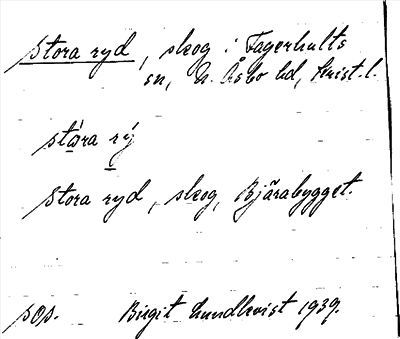 Stora ryd, skog i Fagerhults
sn, N. Åsbo hd, Krist. l.
ståra rý
Stora ryd, skog, Bjärabygget.
pop. Birgit Lundkvist 1939.